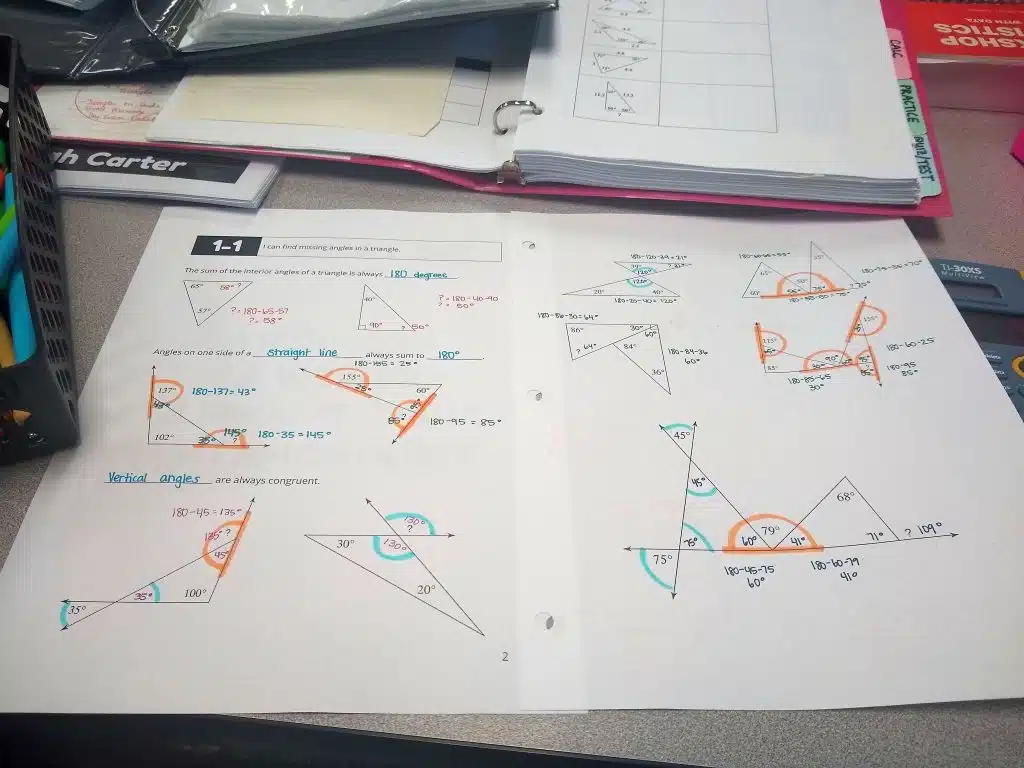 CALC
PRACTICE
QUIZ/TEST
KSHOP
ISTICS
WITH DATA
h Carter
TI-30XS
MultiView
1-1
I can find missing angles in a triangle.
The sum of the interior angles of a triangle is always 180 degrees
65° 58° ?
57°
?= 180-65-57
?= 58°
40°
90° ? 50°
?= 180-40-90
?= 50°
Angles on one side of a straight line always sum to 180°.
137°
43°
180-137= 43°
102° 35° 145° ?
180-35=145°
180-155= 25°
155°
25°
60°
95°
85° ?
180-95 = 85°
Vertical angles are always congruent.
180-45=135°
135° ?
45°
35° 35° 100°
130°
?
130°
30°
20°
2
180-120-39=21°
39° ? 21°
120°
120°
20° 40°
180-20-40=120°
65°
60°
35°
180-56-30=64°
86° 30° 60°
? 64° 84°
36°
180-84-36
60°
115°
65°
85°
90°
30°
155°
180-60-25
180-95
85°
180-85-65
30°
45°
45°
75° 75°
79°
60° 41°
68°
71° ? 109°
180-45-75
60°
180-60-79
41°